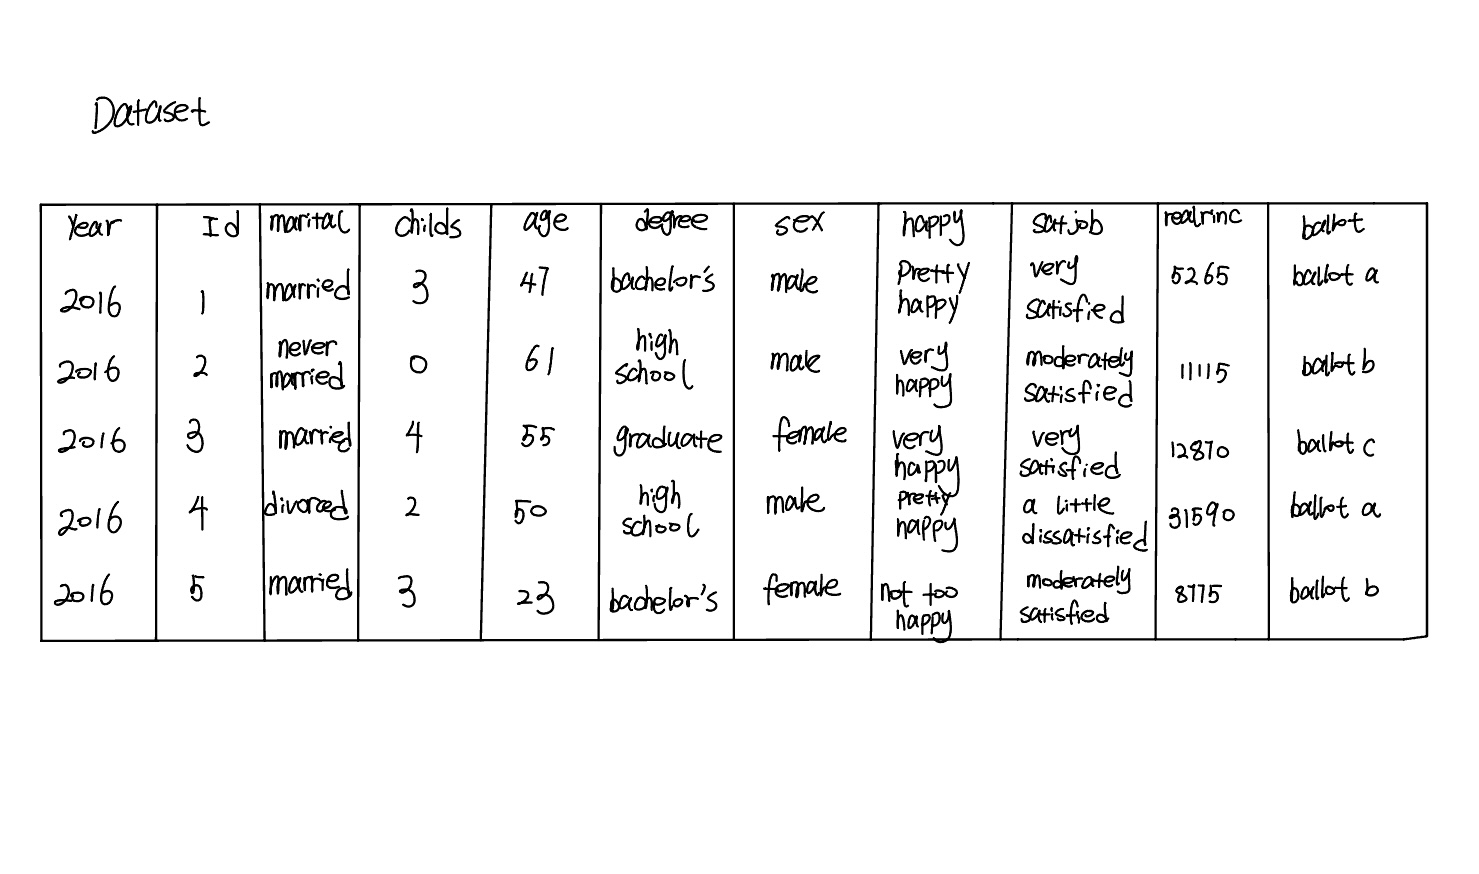 Dataset
Year Id marital childs age degree sex happy satjob realrinc ballot
2016 1 married 3 47 bachelor's male Pretty happy very satisfied 5265 ballot a
2016 2 never married 0 61 high school male very happy moderately satisfied 11115 ballot b
2016 3 married 4 55 graduate female very happy very satisfied 12870 ballot c
2016 4 divorced 2 50 high school male pretty happy a little dissatisfied 31590 ballot a
2016 5 married 3 23 bachelor's female not too happy moderately satisfied 8775 ballot b